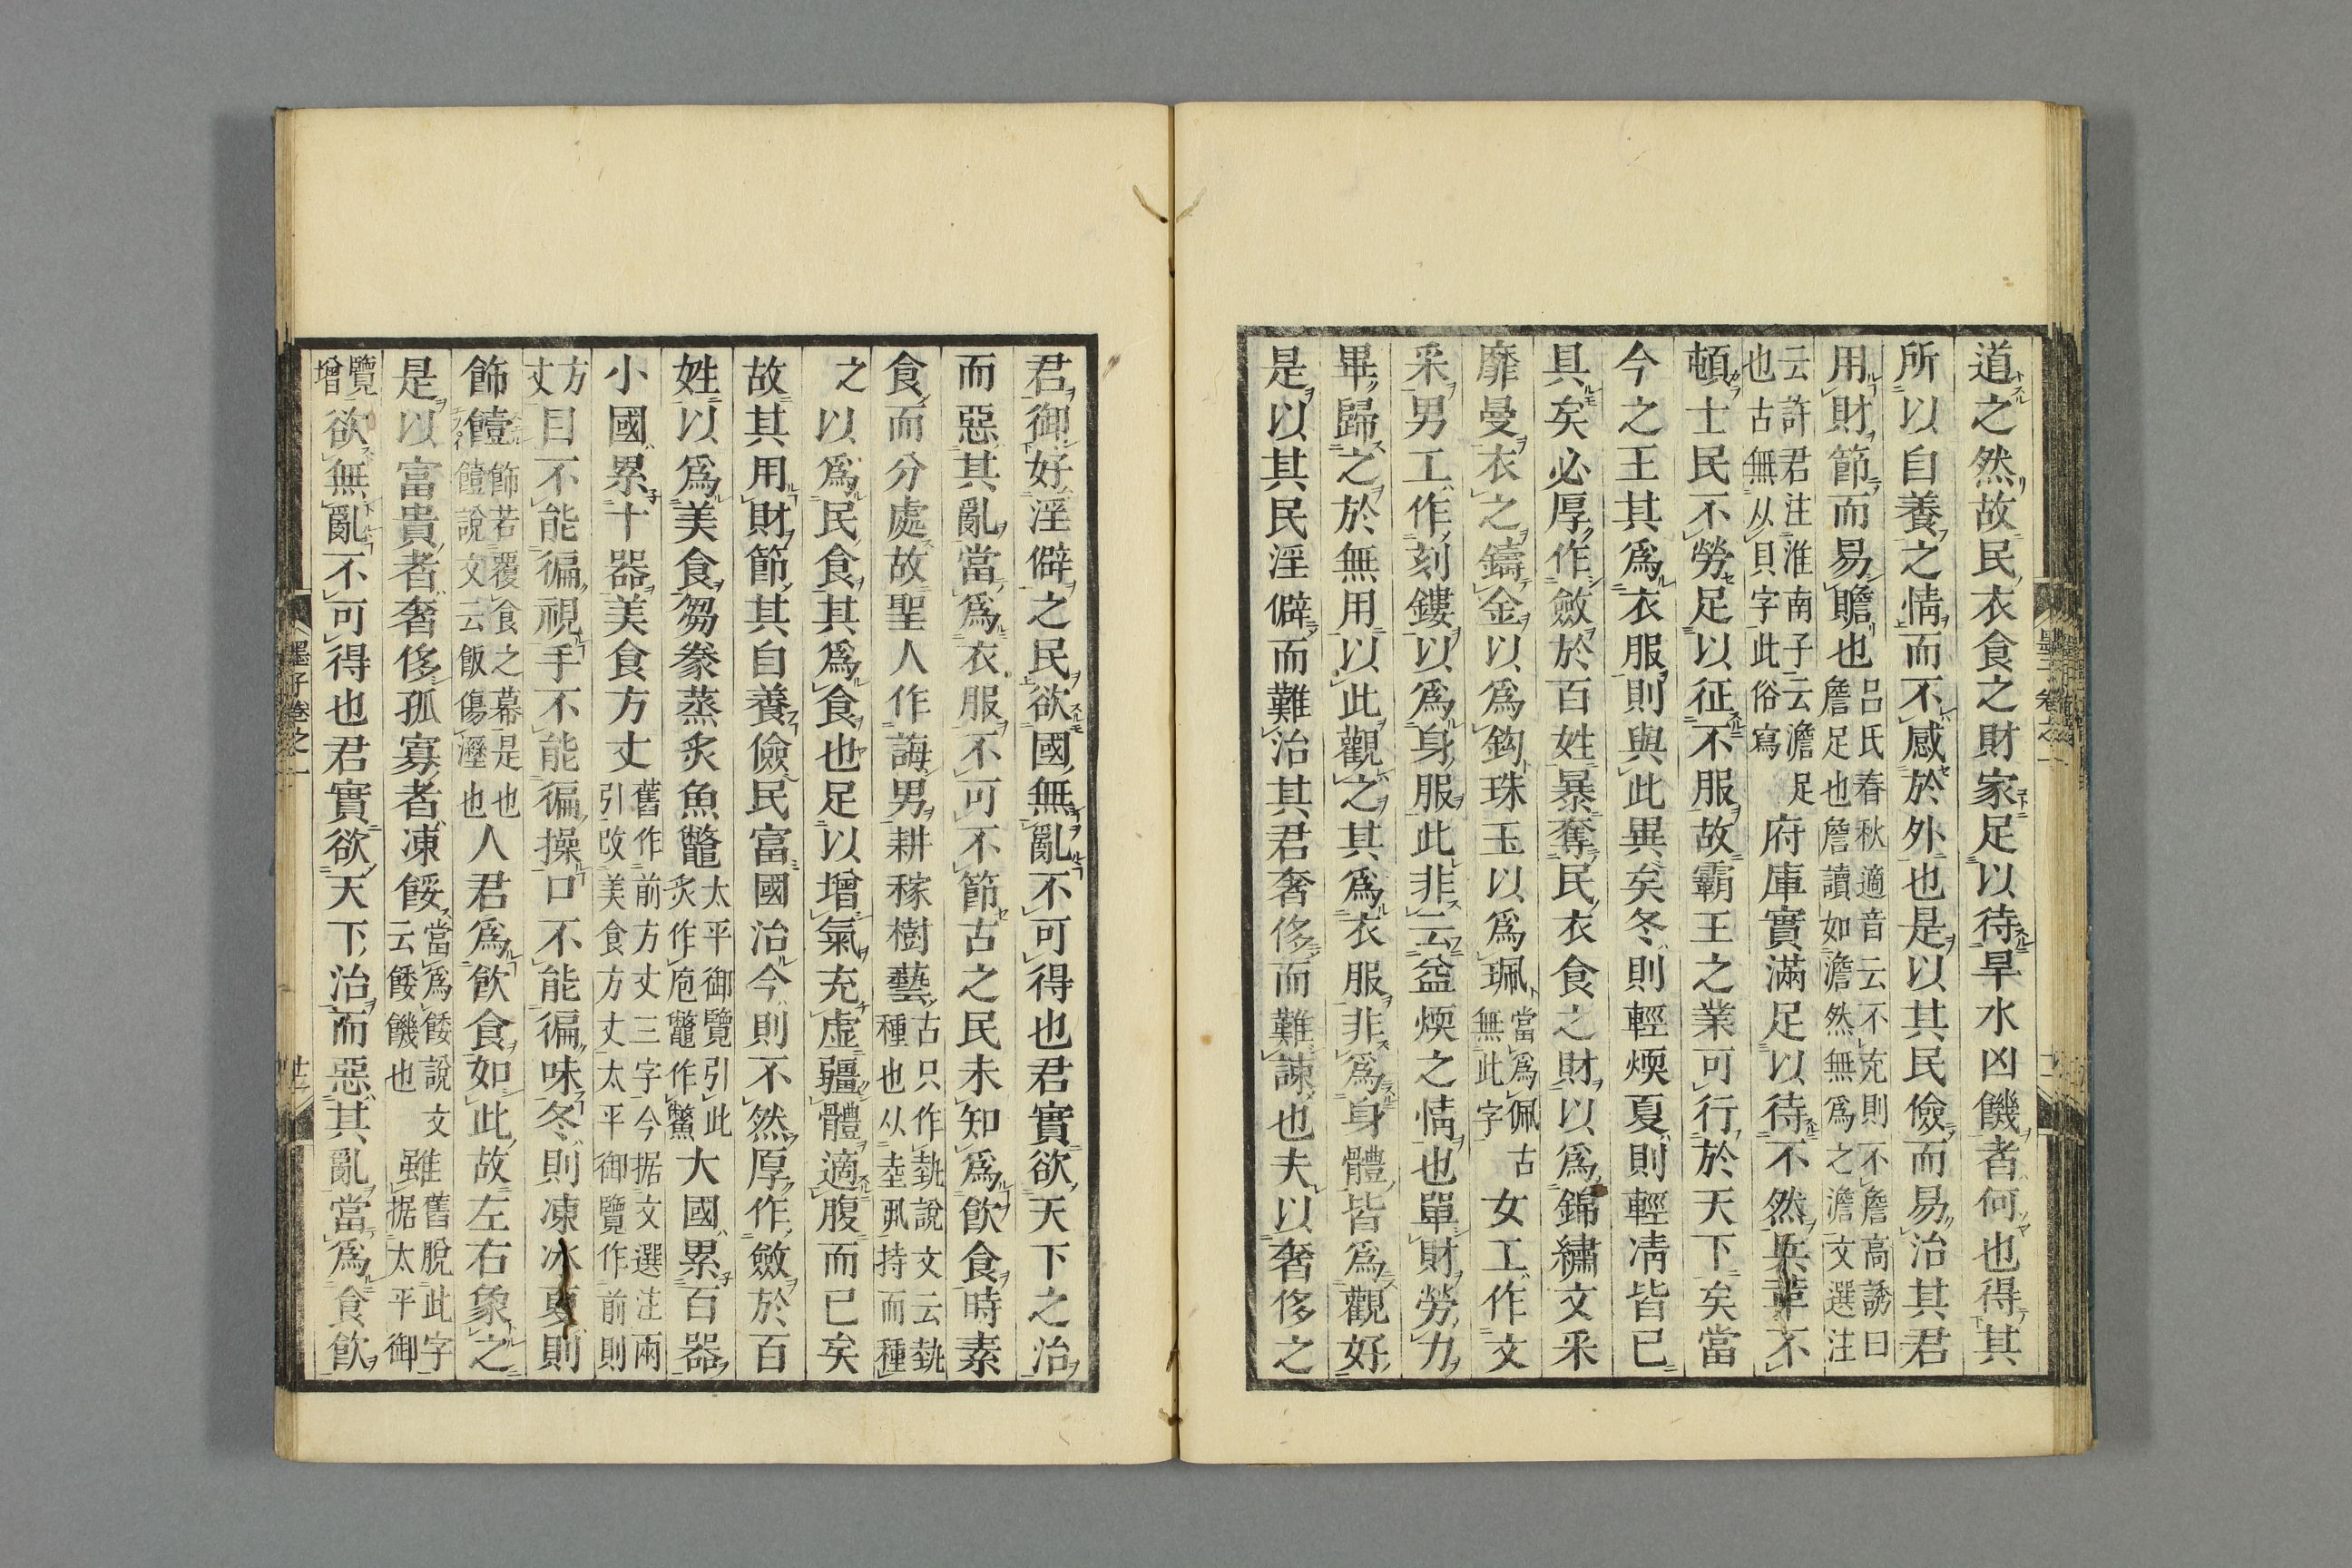 道之然故民衣食之財家足以待旱水凶饑者何也得其
所以自養之情而不感於外也是以其民儉而易治其君
用財節而易贍也呂氏春秋適音云不充則不詹高誘曰詹足也詹讀如澹然無爲之澹文選注
云許君注淮南子云澹足也古無从貝字此俗寫府庫實滿足以待不然兵革不
頓士民不勞足以征不服故霸王之業可行於天下矣當
今之王其爲衣服則與此異矣冬則輕煗夏則輕凊皆已
具矣必厚作斂於百姓暴奪民衣食之財以爲錦繡文采
靡曼衣之鑄金以爲鈎珠玉以爲珮當爲佩古無此字女工作文
采男工作刻鏤以爲身服此非云益煗之情也單財勞力
畢歸之於無用以此觀之其爲衣服非爲身體皆爲觀好
是以其民淫僻而難治其君奢侈而難諫也夫以奢侈之
君御好淫僻之民欲國無亂不可得也君實欲天下之治
而惡其亂當爲衣服不可不節古之民未知爲飲食時素
食而分處故聖人作誨男耕稼樹藝古只作埶說文云埶種也从坴丮持而種
之以爲民食其爲食也足以增氣充虛彊體適腹而已矣
故其用財節其自養儉民富國治今則不然厚作斂於百
姓以爲美食芻豢蒸炙魚鼈太平御覽引此炙作庖鼈作鱉大國累百器
小國累十器美食方丈舊作前方丈三字今据文選注兩引改美食方丈太平御覽作前則
方丈目不能徧視手不能徧操口不能徧味冬則凍冰夏則
飾饐飾若覆食之幕是也饐說文云飯傷溼也人君爲飲食如此故左右象之
是以富貴者奢侈孤寡者凍餒當爲餧說文云餧饑也雖舊脫此字据太平御
覽增欲無亂不可得也君實欲天下治而惡其亂當爲食飲
墨子卷之一
墨子卷之一